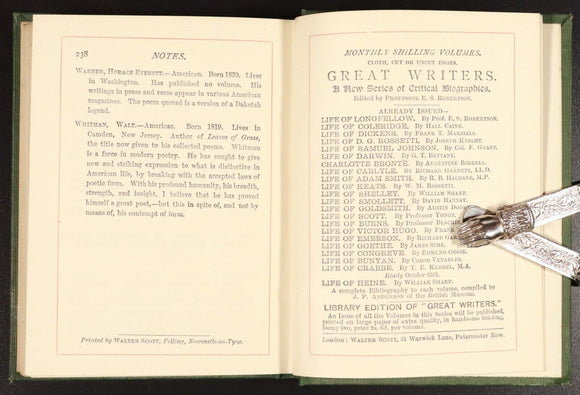 238 NOTES.
WARNER, HORACE EVERETT.—American. Born 1839. Lives
in Washington. Has published no volume. His
writings in prose and verse appear in various American
magazines. The poem quoted is a version of a Dakotah
legend.
WHITMAN, WALT.—American. Born 1819. Lives in
Camden, New Jersey. Author of Leaves of Grass,
the title now given to his collected poems. Whitman
is a force in modern poetry. He has sought to give
new and striking expression to what is distinctive in
American life, by breaking with the accepted laws of
poetic form. With his profound humanity, his breadth,
strength, and insight, I believe that he has proved
himself a great poet,—but this in spite of, and not by
means of, his contempt of form.
Printed by WALTER SCOTT, Felling, Newcastle-on-Tyne.
MONTHLY SHILLING VOLUMES.
CLOTH, CUT OR UNCUT EDGES.
GREAT WRITERS.
A New Series of Critical Biographies.
Edited by PROFESSOR E. S. ROBERTSON.
ALREADY ISSUED—
LIFE OF LONGFELLOW. By Prof. E. S. ROBERTSON.
LIFE OF COLERIDGE. By HALL CAINE.
LIFE OF DICKENS. By FRANK T. MARZIALS.
LIFE OF D. G. ROSSETTI. By JOSEPH KNIGHT.
LIFE OF SAMUEL JOHNSON. By Col. F. GRANT.
LIFE OF DARWIN. By G. T. BETTANY.
CHARLOTTE BRONTE. By AUGUSTINE BIRRELL.
LIFE OF CARLYLE. By RICHARD GARNETT, LL.D.
LIFE OF ADAM SMITH. By R. B. HALDANE, M.P.
LIFE OF KEATS. By W. M. ROSSETTI.
LIFE OF SHELLEY. By WILLIAM SHARP.
LIFE OF SMOLLETT. By DAVID HANNAY.
LIFE OF GOLDSMITH. By AUSTIN
LIFE OF SCOTT. By Professor YONGE.
LIFE OF BURNS. By Professor
LIFE OF VICTOR HUGO. By
LIFE OF EMERSON. By RICHARD
LIFE OF GOETHE. By JAMES SIME.
LIFE OF CONGREVE. By EDMUND GOSSE.
LIFE OF BUNYAN. By CANON VENABLES.
LIFE OF CRABBE. By T. E. KEBBEL, M.A.
Ready October 25th.
LIFE OF HEINE. By WILLIAM SHARP.
A complete Bibliography to each volume, compiled by
J. P. ANDERSON of the British Museum.
LIBRARY EDITION OF "GREAT WRITERS."
An Issue of all the Volumes in this Series will be published,
printed on large paper of extra quality, in handsome binding,
Demy 8vo, price 2s. 6d. per volume.
London: WALTER SCOTT, 24 Warwick Lane, Paternoster Row.